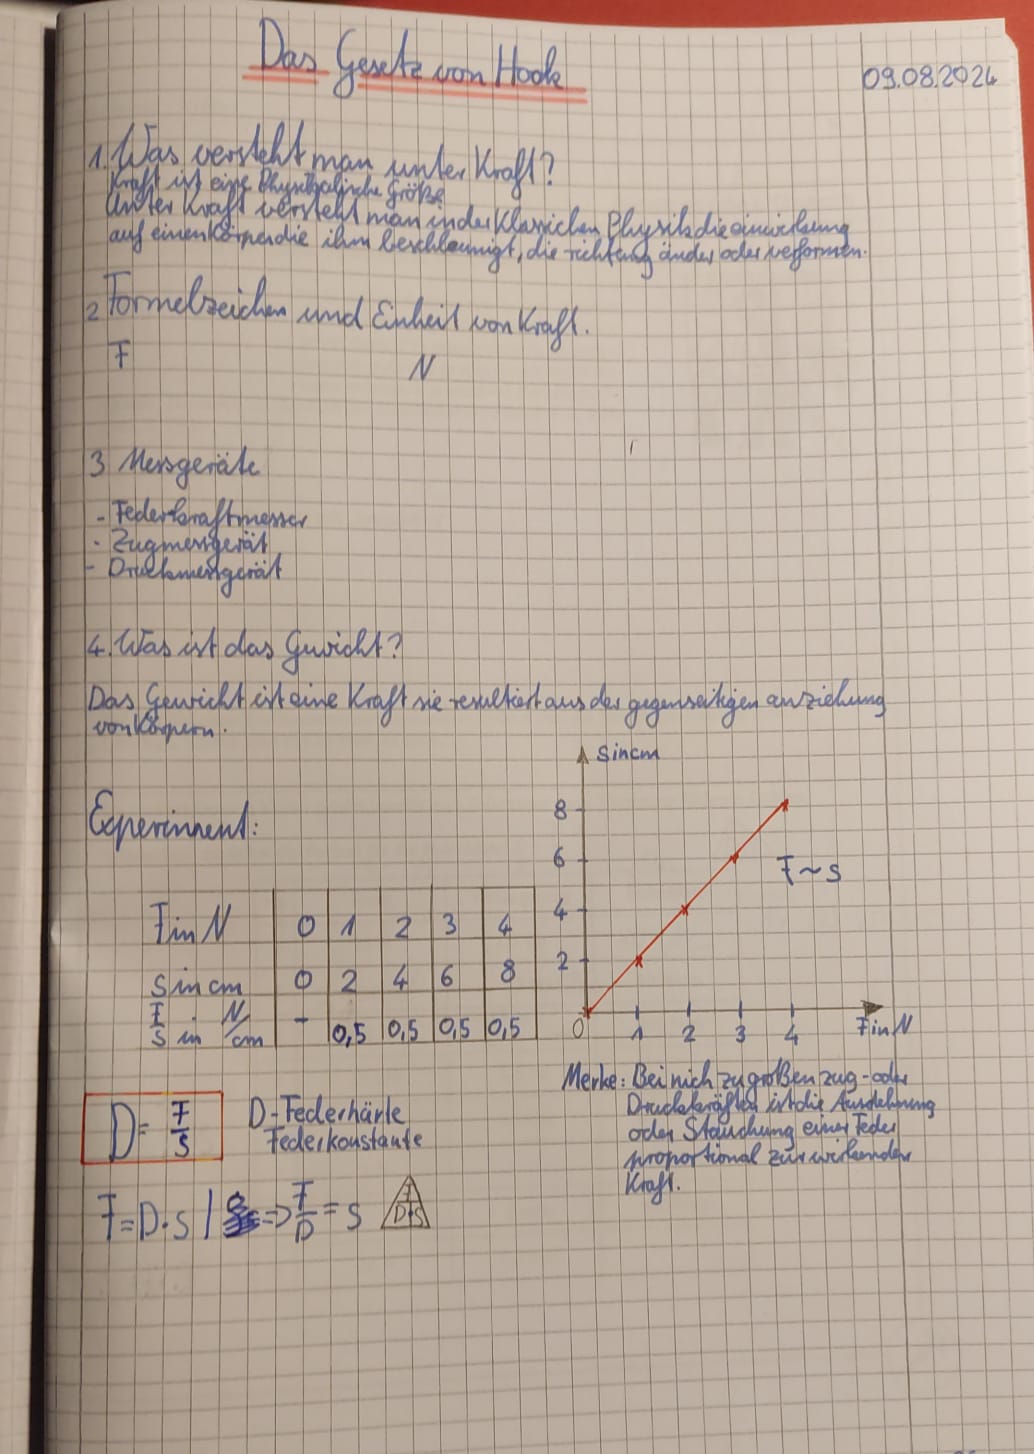 Das Gesetz von Hook
09.08.2024
1. Was versteht man unter Kraft?
Kraft ist eine Physikalische Größe
Unter Kraft versteht man in der Klassichen Physik die einwirkung
auf einen Körper die ihm beschleunigt, die richtung änder oder verformen.
2 Formelzeichen und Einheit von Kraft.
F N
3 Messgeräte
- Federkraftmesser
- Zugmessgerät
- Druckmessgerät
4. Was ist das Gewicht?
Das Gewicht ist eine Kraft sie resultiert aus der gegenseitigen anziehung
von Körpern.
Experiment:
F in N 0 1 2 3 4
s in cm 0 2 4 6 8
F/s in N/cm - 0,5 0,5 0,5 0,5
s in cm
8
6
4
2
0 1 2 3 4 F in N
F~s
D = F/s
D-Federhärte
Federkonstante
F = D·s | => F/D = s
F
D·s
Merke: Bei nich zu großen zug- oder
Druckkräften ist die Ausdehnung
oder Stauchung einer Feder
proportional zur wirkenden
Kraft.